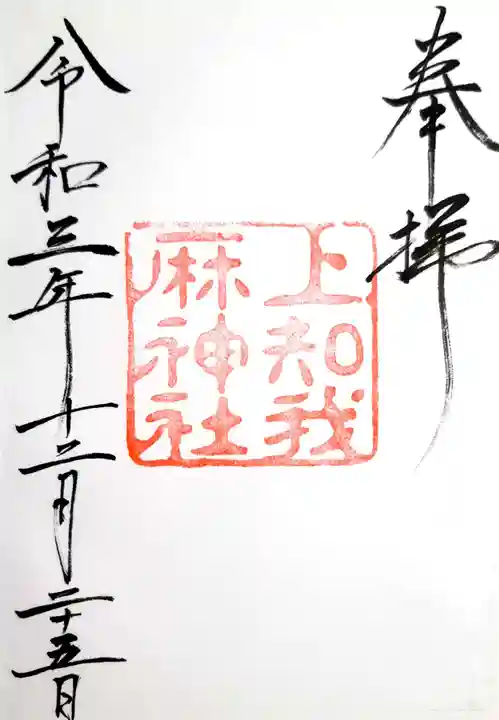 奉拝
上知我
麻神社
令和三年十二月二十五日